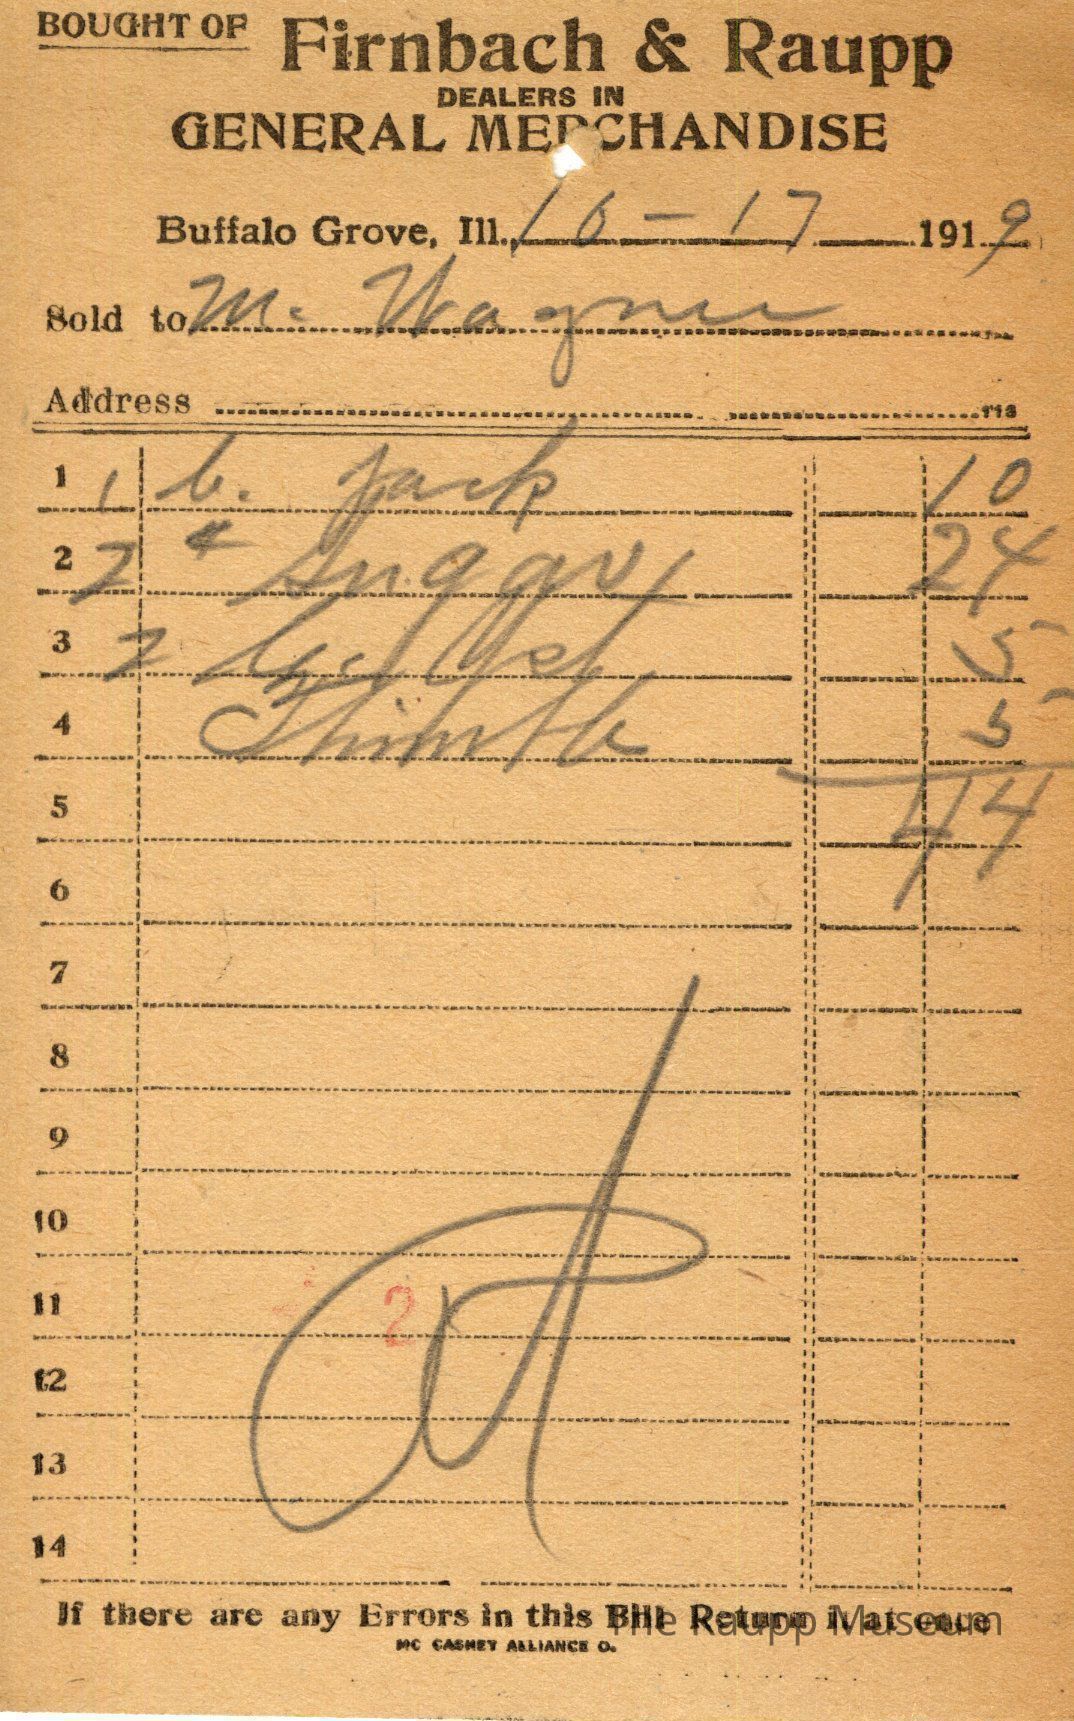 BOUGHT OF Firnbach & Raupp
DEALERS IN
GENERAL MERCHANDISE
Buffalo Grove, Ill., 10-17 1919
Sold to M. Wagner
Address 113
1 1 b. jack 10
2 2 # Suggar 24
3 2 5
4 Thimble 5
5 44
6
7
8
9
10
11 2
12
13
14
If there are any Errors in this Bill Return it at once
The Raupp Museum
MC CASKEY ALLIANCE O.